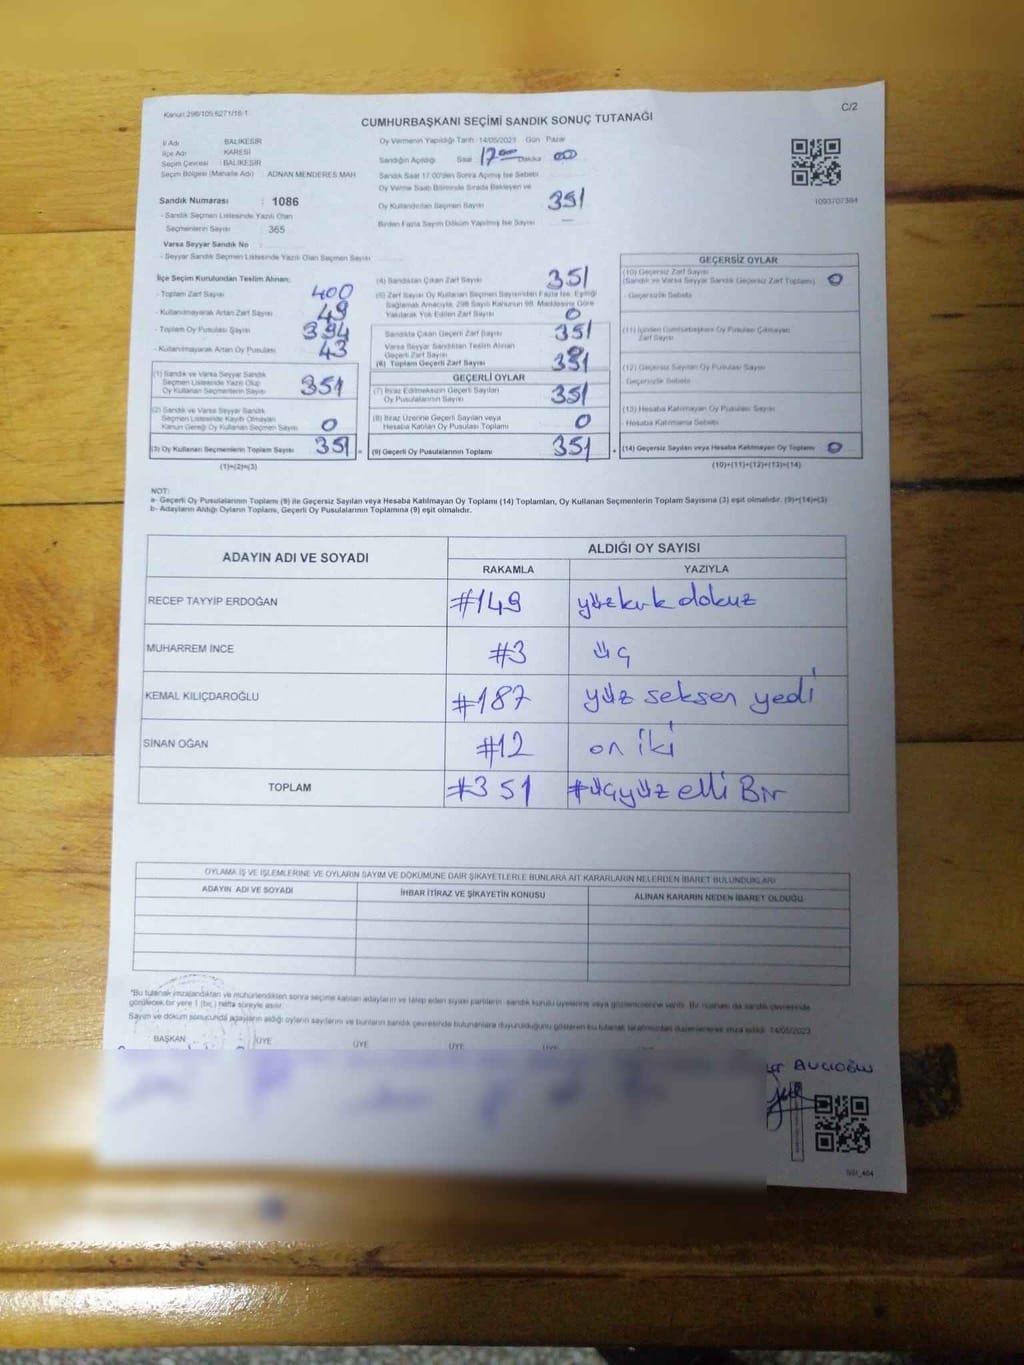 Kanun:298/105,6271/18-1
C/2
CUMHURBAŞKANI SEÇİMİ SANDIK SONUÇ TUTANAĞI
İl Adı : BALIKESİR
İlçe Adı : KARESİ
Seçim Çevresi : BALIKESİR
Seçim Bölgesi (Mahalle Adı) : ADNAN MENDERES MAH.
Oy Vermenin Yapıldığı Tarih : 14/05/2023 Gün : Pazar
Sandığın Açıldığı Saat 17 00 Dakika 00
Sandık Saat 17:00'den Sonra Açılmış İse Sebebi
Oy Verme Saati Bitiminde Sırada Bekleyen ve
Oy Kullandırılan Seçmen Sayısı 351
Birden Fazla Sayım Döküm Yapılmış İse Sayısı —
1093707384
Sandık Numarası : 1086
- Sandık Seçmen Listesinde Yazılı Olan
Seçmenlerin Sayısı : 365
Varsa Seyyar Sandık No :
- Seyyar Sandık Seçmen Listesinde Yazılı Olan Seçmen Sayısı
İlçe Seçim Kurulundan Teslim Alınan:
- Toplam Zarf Sayısı 400
- Kullanılmayarak Artan Zarf Sayısı 49
- Toplam Oy Pusulası Sayısı 394
- Kullanılmayarak Artan Oy Pusulası 43
(1) Sandık ve Varsa Seyyar Sandık
Seçmen Listesinde Yazılı Olup
Oy Kullanan Seçmenlerin Sayısı 351
(2) Sandık ve Varsa Seyyar Sandık
Seçmen Listesinde Kayıtlı Olmayan
Kanun Gereği Oy Kullanan Seçmen Sayısı 0
(3) Oy Kullanan Seçmenlerin Toplam Sayısı 351
(1)+(2)=(3)
(4) Sandıktan Çıkan Zarf Sayısı 351
(5) Zarf Sayısı Oy Kullanan Seçmen Sayısından Fazla İse, Eşitliği
Sağlamak Amacıyla, 298 Sayılı Kanunun 98. Maddesine Göre
Yakılarak Yok Edilen Zarf Sayısı 0
Sandıkta Çıkan Geçerli Zarf Sayısı 351
Varsa Seyyar Sandıktan Teslim Alınan
Geçerli Zarf Sayısı 0
(6) Toplam Geçerli Zarf Sayısı 351
GEÇERLİ OYLAR
(7) İtiraz Edilmeksizin Geçerli Sayılan
Oy Pusulalarının Sayısı 351
(8) İtiraz Üzerine Geçerli Sayılan veya
Hesaba Katılan Oy Pusulası Toplamı 0
(9) Geçerli Oy Pusulalarının Toplamı 351
GEÇERSİZ OYLAR
(10) Geçersiz Zarf Sayısı
(Sandık ve Varsa Seyyar Sandık Geçersiz Zarf Toplamı) 0
- Geçersizlik Sebebi
(11) İçinden Cumhurbaşkanı Oy Pusulası Çıkmayan
Zarf Sayısı
(12) Geçersiz Sayılan Oy Pusula Sayısı
Geçersizlik Sebebi
(13) Hesaba Katılmayan Oy Pusula Sayısı
- Hesaba Katılmama Sebebi
(14) Geçersiz Sayılan veya Hesaba Katılmayan Oy Toplamı 0
(10)+(11)+(12)+(13)=(14)
NOT:
a- Geçerli Oy Pusulalarının Toplamı (9) ile Geçersiz Sayılan veya Hesaba Katılmayan Oy Toplamı (14) Toplamları, Oy Kullanan Seçmenlerin Toplam Sayısına (3) eşit olmalıdır. (9)+(14)=(3)
b- Adayların Aldığı Oyların Toplamı, Geçerli Oy Pusulalarının Toplamına (9) eşit olmalıdır.
ADAYIN ADI VE SOYADI
ALDIĞI OY SAYISI
RAKAMLA YAZIYLA
RECEP TAYYİP ERDOĞAN #149 yüzkırk dokuz
MUHARREM İNCE #3 üç
KEMAL KILIÇDAROĞLU #187 yüz seksen yedi
SİNAN OĞAN #12 on iki
TOPLAM #351 #üçyüz elli Bir
OYLAMA İŞ VE İŞLEMLERİNE VE OYLARIN SAYIM VE DÖKÜMÜNE DAİR ŞİKAYETLERLE BUNLARA AİT KARARLARIN NELERDEN İBARET BULUNDUKLARI
ADAYIN ADI VE SOYADI İHBAR İTİRAZ VE ŞİKAYETİN KONUSU ALINAN KARARIN NEDEN İBARET OLDUĞU
*Bu tutanak imzalandıktan ve mühürlendikten sonra seçime katılan adayların ve talep eden siyasi partilerin sandık kurulu üyelerine veya gözlemcilerine verilir. Bir nüshası da sandık çevresinde
görülecek bir yere 1 (bir) hafta süreyle asılır.
Sayım ve döküm sonucunda adayların aldığı oyların sayılarını ve bunların sandık çevresinde bulunanlara duyurulduğunu gösteren bu tutanak tarafımızdan düzenlenerek imza edildi. 14/05/2023
BAŞKAN ÜYE ÜYE ÜYE ÜYE
AVCIOĞLU